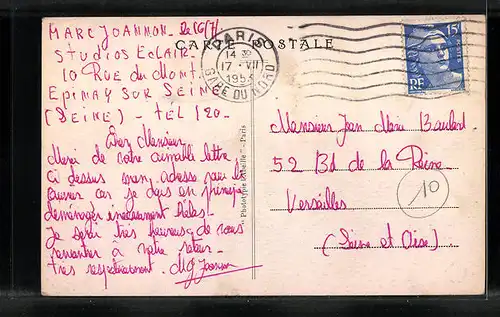 MARC JOANNON. Le 16/7/
STUDIOS ECLAIR
CARTE POSTALE
10 Rue du Mont
EPINAY SUR SEINE
(SEINE) - TEL 120 -
Cher Monsieur
Merci de votre aimable lettre
Ci dessus mon adresse
car je dois en principe
déménager hélas -
Je serai très heureux de vous
rencontrer à votre retour -
très respectueusement. MJoannon
PARIS
14 H
17 - VII
195
GARE DU NORD
15F
POSTES
RF
Phototypie "Abeille" - Paris
Monsieur Jean Marie Boulart
52 Bd de la Reine
Versailles
10
(Seine et Oise)